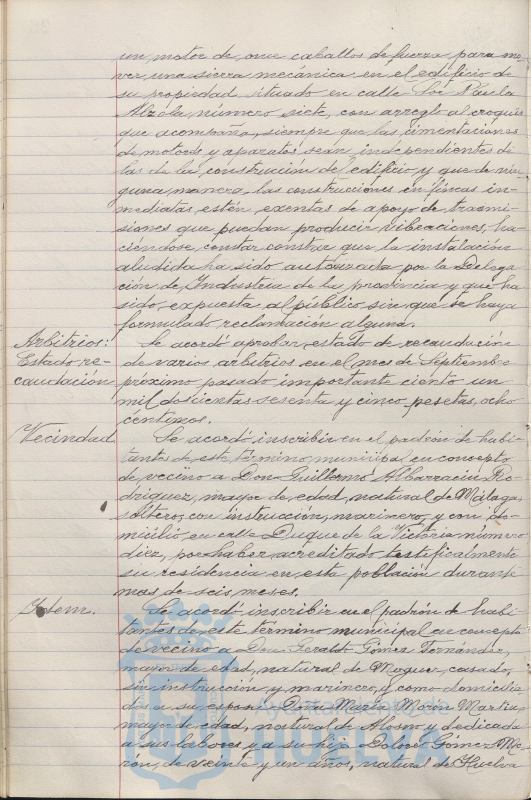 un motor de once caballos de fuerza para mo-
ver una sierra mecánica en el edificio de
su propiedad situado en calle Sor Paula
Alzola, número siete, con arreglo al croquis
que acompaña, siempre que las cimentaciones
de motores y aparatos sean independientes de
las de la construcción del edificio y que de nin-
guna manera las construcciones en fincas in-
mediatas estén exentas de apoyo de trasmi-
siones que puedan producir vibraciones, ha-
ciéndose constar constar que la instalación
aludida ha sido autorizada por la Delega
ción de Industria de la provincia y que ha
sido expuesta al público sin que se haya
formulado reclamación alguna.
Arbitrios:
Estado re-
caudación
Se acordó aprobar estado de recaudación
de varios arbitrios en el mes de Septiembre
próximo pasado importante ciento un
mil doscientas sesenta y cinco pesetas, ocho
céntimos.
Vecindad
Se acordó inscribir en el padrón de habi-
tantes de este término municipal en concepto
de vecino a Don Guillermo Albarracín Ro-
dríguez, mayor de edad, natural de Málaga
soltero, con instrucción, marinero, y con do-
micilio en calle Duque de la Victoria número
diez, por haber acreditado testificalmente
su residencia en esta población durante
mas de seis meses.
Idem.
Se acordó inscribir en el padrón de habi-
tantes de este término municipal en concepto
de vecino a Don Geraldo Gómez Fernández,
mayor de edad, natural de Moguer, casado,
sin instrucción y marinero, y como domicilia
dos a su esposa Doña María Morón Martín,
mayor de edad, natural de Alosno y dedicada
a sus labores y a su hija Dolores Gómez Mo-
rón, de veinte y un años, natural de Huelva